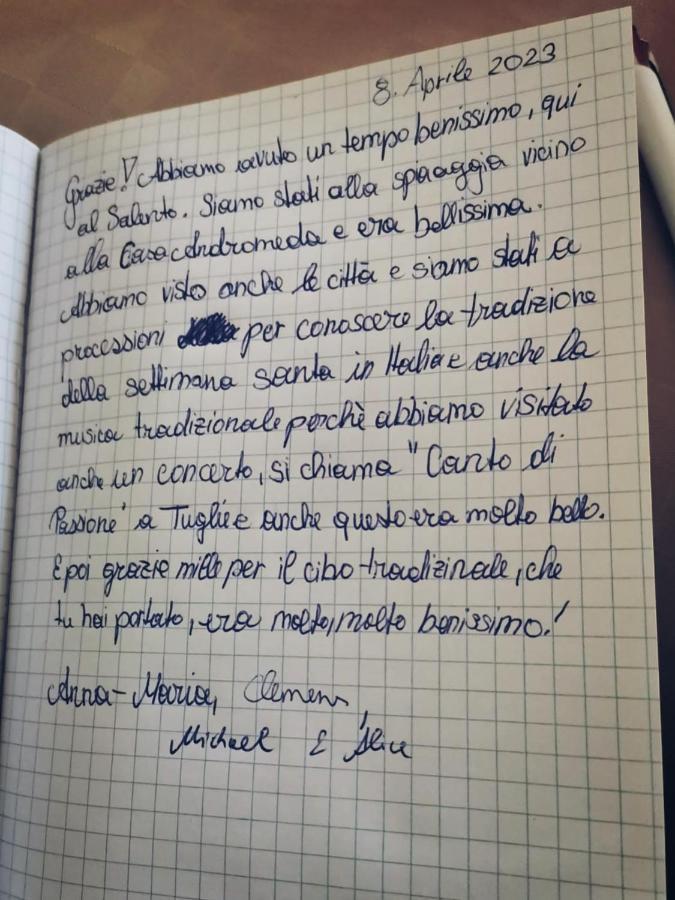 8. Aprile 2023
Grazie! Abbiamo avuto un tempo benissimo, qui
al Salento. Siamo stati alla spiaaggia vicino
alla Casa Andromeda e era bellissima.
Abbiamo visto anche le città e siamo stati a
processioni per conoscere la tradizione
della settimana santa in Italia e anche la
musica tradizionale perchè abbiamo visitato
anche un concerto, si chiama "Canto di
Passione" a Tuglie e anche questo era molto bello.
E poi grazie mille per il cibo tradizinale, che
tu hai portato, era molto, molto benissimo!
Anna-Maria, Clemens,
Michael &